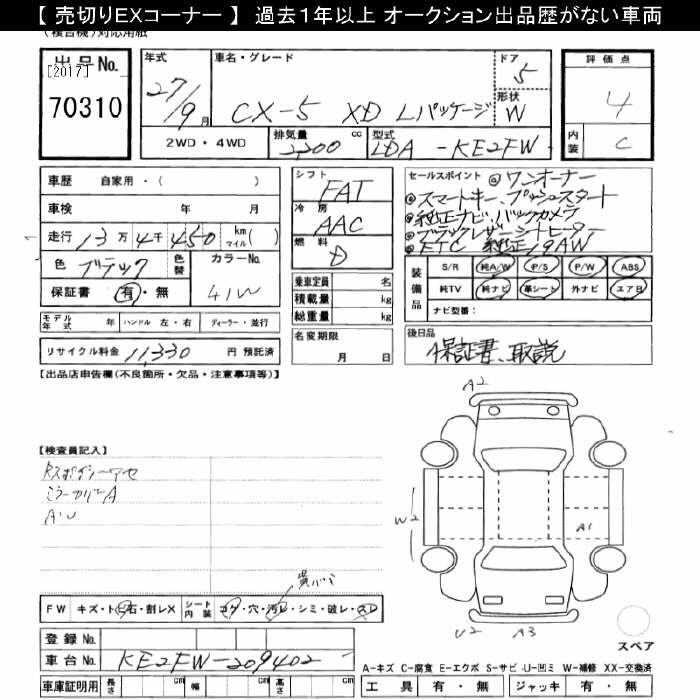 【 売切りEXコーナー 】 過去1年以上 オークション出品歴がない車両
(複合機)対応用紙
出品No.
[2017]
70310
年式
27/9月
車名・グレード
CX-5 XD Lパッケージ
ドア
5
形状
W
評価点
4
内装
C
2WD・4WD
排気量
2,200 cc
型式
LDA-KE2FW
車歴 自家用・( )
車検 年 月
走行 13万4千450 km マイル( )
色 ブラック
色替
カラーNo.
41W
保証書 有・無
モデル年式 年 ハンドル 左・右 ディーラー・並行
リサイクル料金 11,330 円 預託済
シフト
FAT
冷房
AAC
燃料
D
乗車定員 名
積載量 kg
総重量 kg
名変期限
月 日
セールスポイント ◎ワンオーナー
◎スマートキー、プッシュスタート
◎純正ナビ、バックカメラ
◎ブラックレザーシートヒーター
◎ETC 純正19AW
装備品
S/R 純A/W P/S P/W ABS
純TV 純ナビ 革シート 外ナビ エア日
ナビ型番:
後日品
保証書、取説
【出品店申告欄(不良箇所・欠品・注意事項等)】
【検査員記入】
ミラーカバーA
A・U
A2
W2
A1
U2 A3
スペア
FW キズ・ト石・割レX
シート内装
コゲ・穴・汚レ・シミ・破レ・スレ
登録No.
車台No. KE2FW-209402
車庫証明用 長さ cm 幅 cm 高さ cm
A-キズ C-腐食 E-エクボ S-サビ U-凹ミ W-補修 XX-交換済
工具 有・無 ジャッキ 有・無